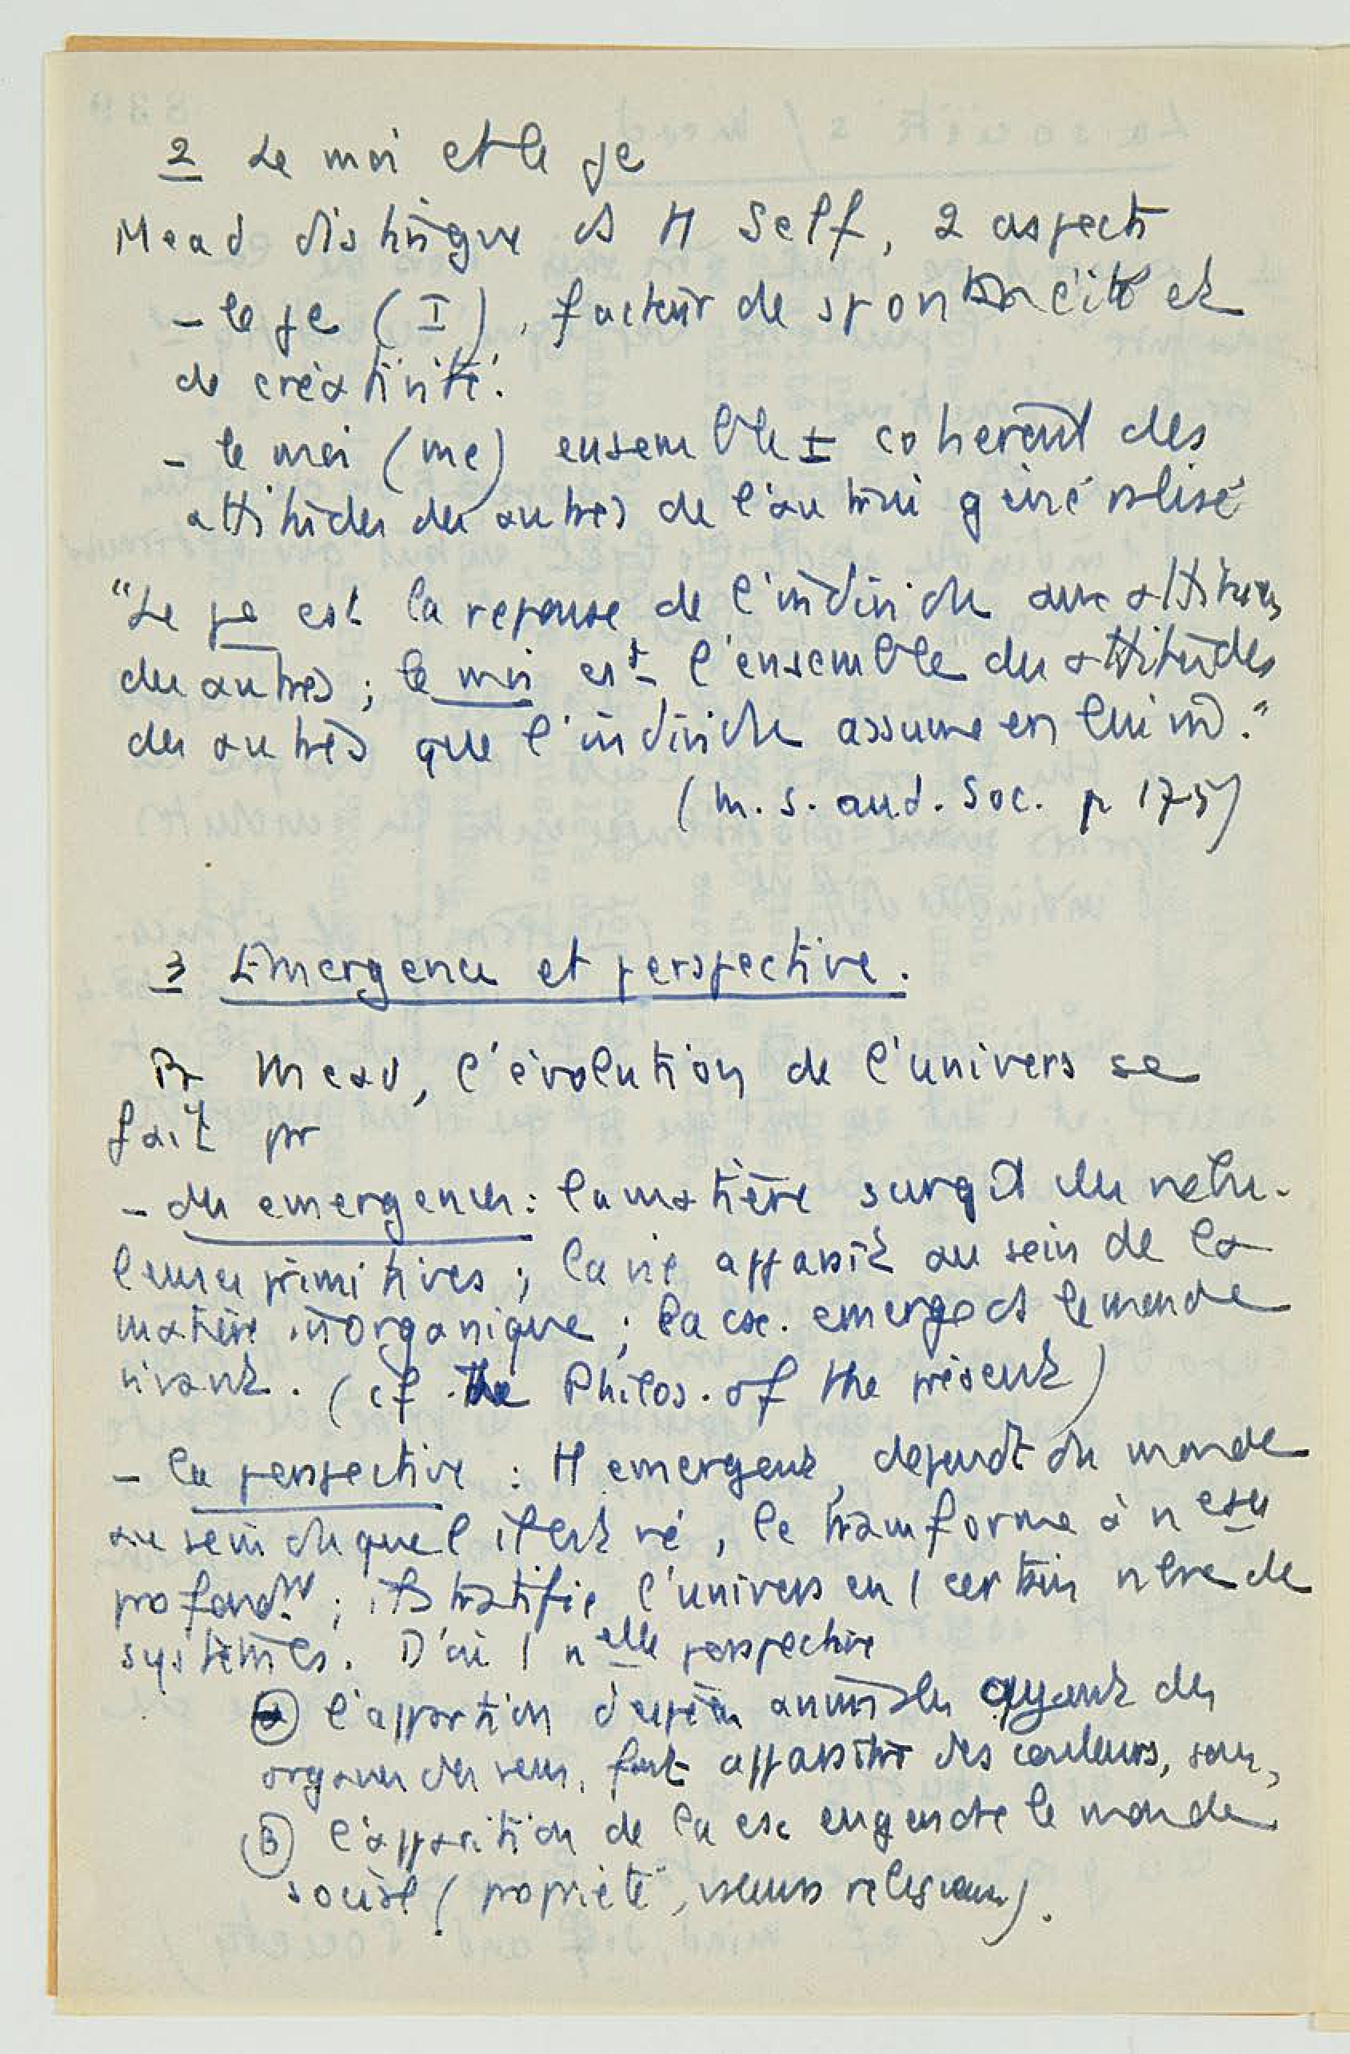 2 Le moi et le je
Mead distingue ds tt Self, 2 aspects
- le je (I), facteur de spontanéité et
de créativité.
- le moi (me) ensemble ± cohérent des
attitudes des autres de l'autrui généralisé
"Le je est la réponse de l'individu aux attitudes
des autres ; le moi est l'ensemble des attitudes
des autres que l'individu assume en lui m̂."
(M. S. and. Soc. p 175)
3 Emergence et perspective.
Pr Mead, l'évolution de l'univers se
fait pr
- des emergences : la matière surgit des nébu-
leuses primitives ; la vie apparaît au sein de la
matière inorganique ; la csc. emerge ds le monde
vivant. (cf. The Philos. of the présent)
- la perspective : tt emergent, dépendt du monde
au sein duquel il est né, le transforme à nveau
profondt ; il stratifie l'univers en 1 certain nbre de
systèmes. D'où 1 nelle perspective
α l'apparition d'espèces animales ayant des
organes des sens, fait apparaître des couleurs, sons,
β l'apparition de la csc engendre le monde
social (propriété, valeurs religieuses).